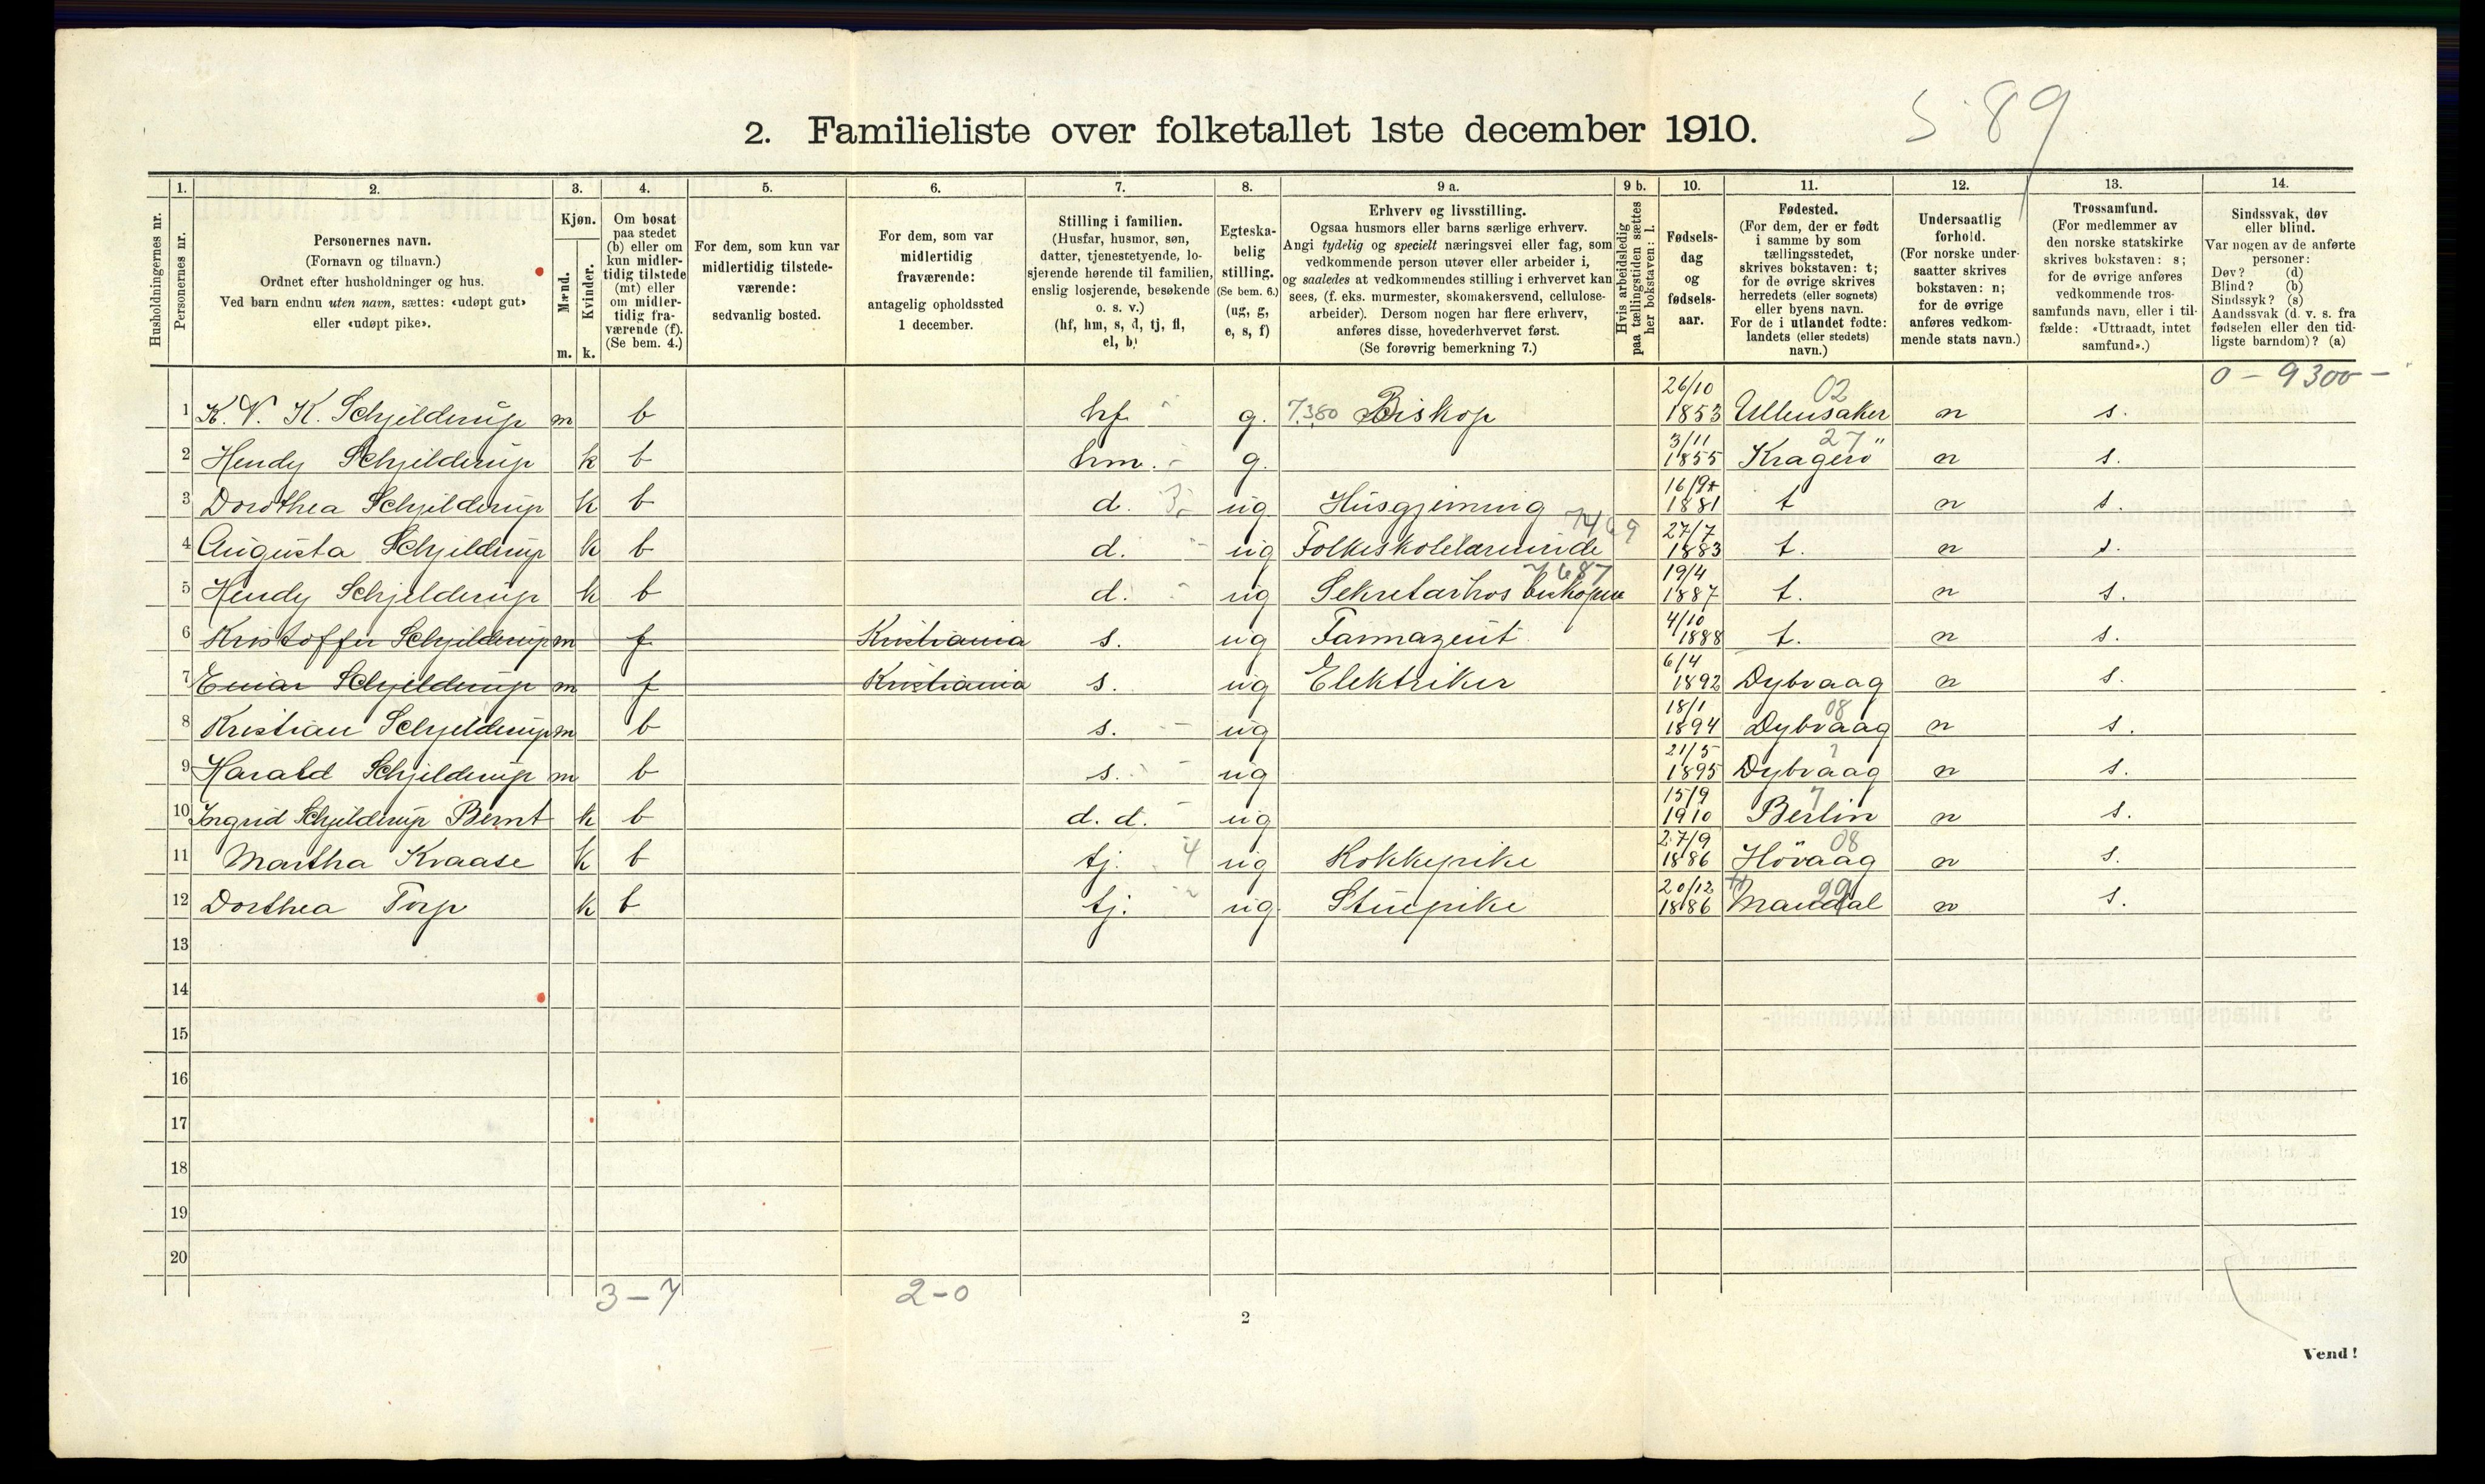 S 89
2. Familieliste over folketallet 1ste december 1910.
Husholdningernes nr.
1. Personernes nr.
2. Personernes navn. (Fornavn og tilnavn.) Ordnet efter husholdninger og hus. Ved barn endnu uten navn, sættes: «udøpt gut» eller «udøpt pike».
3. Kjøn. Mænd. m. Kvinder. k.
4. Om bosat paa stedet (b) eller om kun midlertidig tilstede (mt) eller om midlertidig fraværende (f). (Se bem. 4.)
5. For dem, som kun var midlertidig tilstedeværende: sedvanlig bosted.
6. For dem, som var midlertidig fraværende: antagelig opholdssted 1 december.
7. Stilling i familien. (Husfar, husmor, søn, datter, tjenestetyende, losjerende hørende til familien, enslig losjerende, besøkende o. s. v.) (hf, hm, s, d, tj, fl, el, b)
8. Egteskabelig stilling. (Se bem. 6.) (ug, g, e, s, f)
9 a. Erhverv og livsstilling. Ogsaa husmors eller barns særlige erhverv. Angi tydelig og specielt næringsvei eller fag, som vedkommende person utøver eller arbeider i, og saaledes at vedkommendes stilling i erhvervet kan sees, (f. eks. murmester, skomakersvend, cellulosearbeider). Dersom nogen har flere erhverv, anføres disse, hovederhvervet først. (Se forøvrig bemerkning 7.)
9 b. Hvis arbeidsledig paa tællingstiden sættes her bokstaven: l.
10. Fødselsdag og fødselsaar.
11. Fødested. (For dem, der er født i samme by som tællingsstedet, skrives bokstaven: t; for de øvrige skrives herredets (eller sognets) eller byens navn. For de i utlandet fødte: landets (eller stedets) navn.)
12. Undersaatlig forhold. (For norske undersaatter skrives bokstaven: n; for de øvrige anføres vedkommende stats navn.)
13. Trossamfund. (For medlemmer av den norske statskirke skrives bokstaven: s; for de øvrige anføres vedkommende trossamfunds navn, eller i tilfælde: «Uttraadt, intet samfund».)
14. Sindssvak, døv eller blind. Var nogen av de anførte personer: Døv? (d) Blind? (b) Sindssyk? (s) Aandssvak (d. v. s. fra fødselen eller den tidligste barndom)? (a)
0 - 9300 -
1 K. V. K. Schjelderup m b hf g. 7380 Biskop 26/10 1853 02 Ullensaker n s.
2 Hendy Schjelderup k b hm. g. 3/11 1855 27 Kragerö n s.
3 Dorothea Schjelderup k b d. 3 ug Husgjerning 16/9 1881 t n s.
4 Augusta Schjelderup k b d. ug Folkeskolelærerinde 27/7 1883 t. n s.
5 Hendy Schjelderup k b d. ug Sekretær hos biskopen 7687 19/4 1887 t. n s.
6 Kristoffer Schjelderup m f Kristiania s. ug Farmazeut 4/10 1888 t. n s.
7 Einar Schjelderup m f Kristiania s. ug Elektriker 6/4 1892 Dybvaag n s.
8 Kristian Schjelderup m b s. ug 18/1 1894 08 Dybvaag n s.
9 Harald Schjelderup m b s. ug 21/5 1895 Dybvaag n s.
10 Ingrid Schjelderup Bernt k b d. d. ug 15/9 1910 Berlin n s.
11 Martha Kvaase k b tj. 4 ug Kokkepike 27/9 1886 08 Hövaag n s.
12 Dorthea Torp k b tj. ug Stuepike 20/12 1886 Mandal n s.
13
14
15
16
17
18
19
20
3 - 7 2 - 0
2
Vend!